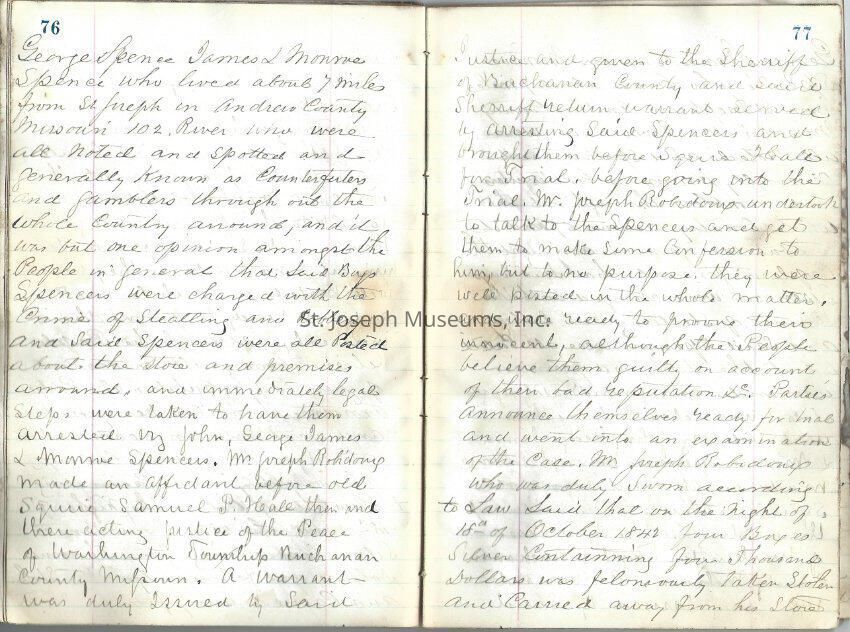 76
George Spence James & Monroe
Spence who lived about 7 miles
from St Joseph in Andrew County
Missouri 102 River who were
all Noted and Spotted and
generally Known as Counterfeiters
and gamblers through out the
whole Country arround, and it
was but one opinion amongst the
People in general that Said Boys
Spencers were charged with the
Crime of Stealling and
and Said Spencers were all Posted
about the Store and premises
arround, and immediately legal
Steps were taken to have them
arrested viz John, George James
& Monroe Spencers. Mr Joseph Robidoux
made an affidavit before old
Squire Samuel P. Heall then and
there acting justice of the Peace
of Washington Township Buchanan
County Missouri. A warrant
was duly Issued by Said
77
Justice and given to the Sherriff
of Buchanan County and Said
Sherriff return warrant Served
by arresting Said Spencers and
brought them before Squire Heall
for Trial. before going into the
Trial Mr. Joseph Robidoux undertook
to talk to the Spencers and get
them to make Some Confession to
him, but to no purpose, they were
well posted in the whole matter,
ready to proove their
innocent, although the People
believe them guilty on account
of their bad reputation &c. Parties
announce themselves ready for trial
and went into an examination
of the Case. Mr Joseph Robidoux
who was duly Sworn according
to Law Said that on the night of
18th of October 1842 four Boxes
Silver Containning four Thousand
Dollars was felonsously Taken Stolen
and Carried away from his Store
St. Joseph Museums, Inc.